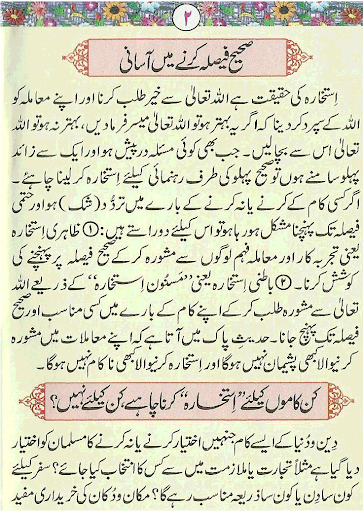 ۲
صحیح فیصلہ کرنے میں آسانی
اِستخارہ کی حقیقت ہے اللہ تعالیٰ سے خیر طلب کرنا اور اپنے معاملہ کو
اللہ کے سپرد کر دینا کہ اگر یہ بہتر ہو تو اللہ تعالیٰ میسر فرما دیں، بہتر نہ ہو تو اللہ
تعالیٰ اس سے بچا لیں۔ جب بھی کوئی مسئلہ درپیش ہو اور ایک سے زائد
پہلو سامنے ہوں تو صحیح پہلو کی طرف رہنمائی کیلئے اِستخارہ کر لینا چاہئے۔
اگر کسی کام کے کرنے یا نہ کرنے کے بارے میں تردُّد (شک) ہو اور حتمی
فیصلہ تک پہنچنا مشکل ہو رہا ہو تو اس کیلئے دو راستے ہیں: ① ظاہری استخارہ
یعنی تجربہ کار اور معاملہ فہم لوگوں سے مشورہ کر کے صحیح فیصلہ پر پہنچنے کی
کوشش کرنا۔ ② باطنی اِستخارہ یعنی ”مَسنون اِستخارہ“ کے ذریعے اللہ
تعالیٰ سے مشورہ طلب کر کے اپنے کام کے بارے میں کسی مناسب اور صحیح
فیصلہ تک پہنچ جانا۔ حدیثِ پاک میں آتا ہے کہ اپنے معاملات میں مشورہ
کرنیوالا بھی پشیمان نہیں ہوگا اور اِستخارہ کرنیوالا بھی ناکام نہیں ہوگا۔
کن کاموں کیلئے ”اِستخارہ“ کرنا چاہیے، کن کیلئے نہیں؟
دِین و دُنیا کے ایسے کام جنہیں اختیار کرنے یا نہ کرنے کا مسلمان کو اختیار
دیا گیا ہے مثلاً تجارت یا ملازمت میں سے کس کا انتخاب کیا جائے؟ سفر کیلئے
کون سا دِن یا کون سا ذریعہ مناسب رہے گا؟ مکان و دُکان کی خریداری مفید